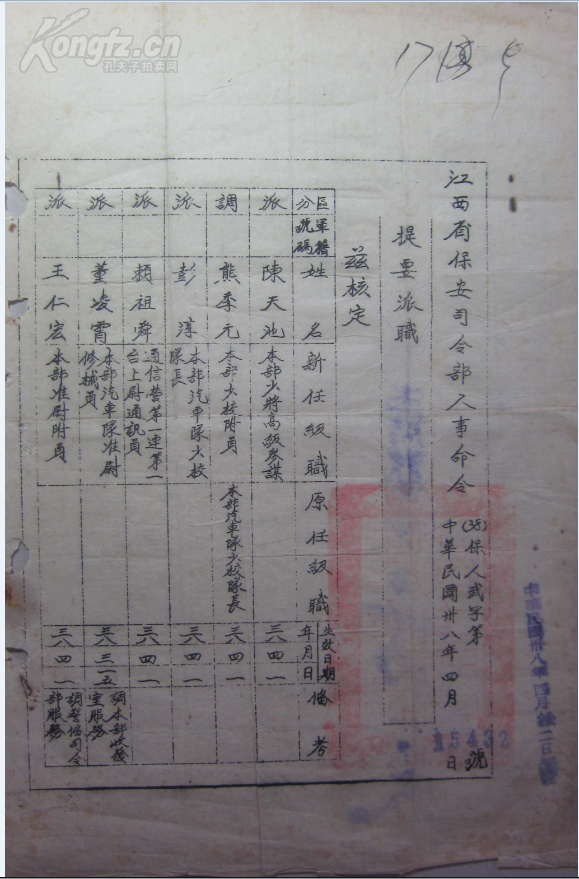 Kongfz.cn
孔夫子拍卖网
江西省保安司令部人事命令
(38)保人武字第15432號
中華民國卅八年四月 日
提要派職
茲核定
區分 軍籍號碼 姓名 新任級職 原任級職 生效日期 年月日 備考
派 陳天池 本部少將高級參謀 三八 四 一
調 熊季元 本部少校附員 本部汽車隊少校隊長 三八 四 一
派 彭淳 本部汽車隊少校隊長 三八 四 一
派 賴祖舜 通信營第一連第一台上尉通訊員 三八 四 一
派 董凌霄 本部汽車隊准尉修械員 三八 三 一五 調本部收發室服務
派 王仁宏 本部准尉附員 三八 四 一 調警備司令部服務